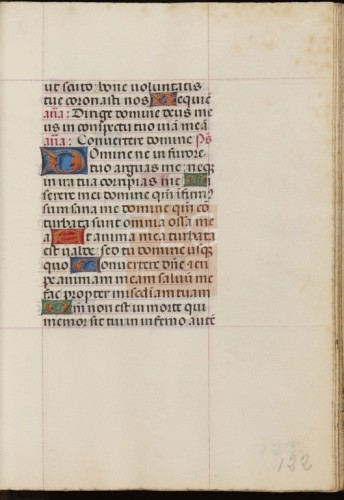 ut scuto: bone uoluntatis
tue coronasti nos Requiē
an̄a: Dirige domine deus me
us in conspectu tuo uiā meā
an̄a: Conuertere domine p̄s
Domine ne in furore
tuo arguas me: neqꝫ
in ira tua corripias me Mi
serere mei domine qm̄ infirmꝰ
sum sana me domine qm̄ cō
turbata sunt omnia ossa mea
Et anima mea turbata
est ualde: sed tu domine usqꝫ
quo Conuertere dn̄e ⁊ eri
pe animam meam saluū me
fac propter misc̄diam tuam
Qm̄ non est in morte qui
memor sit tui in inferno autē
122